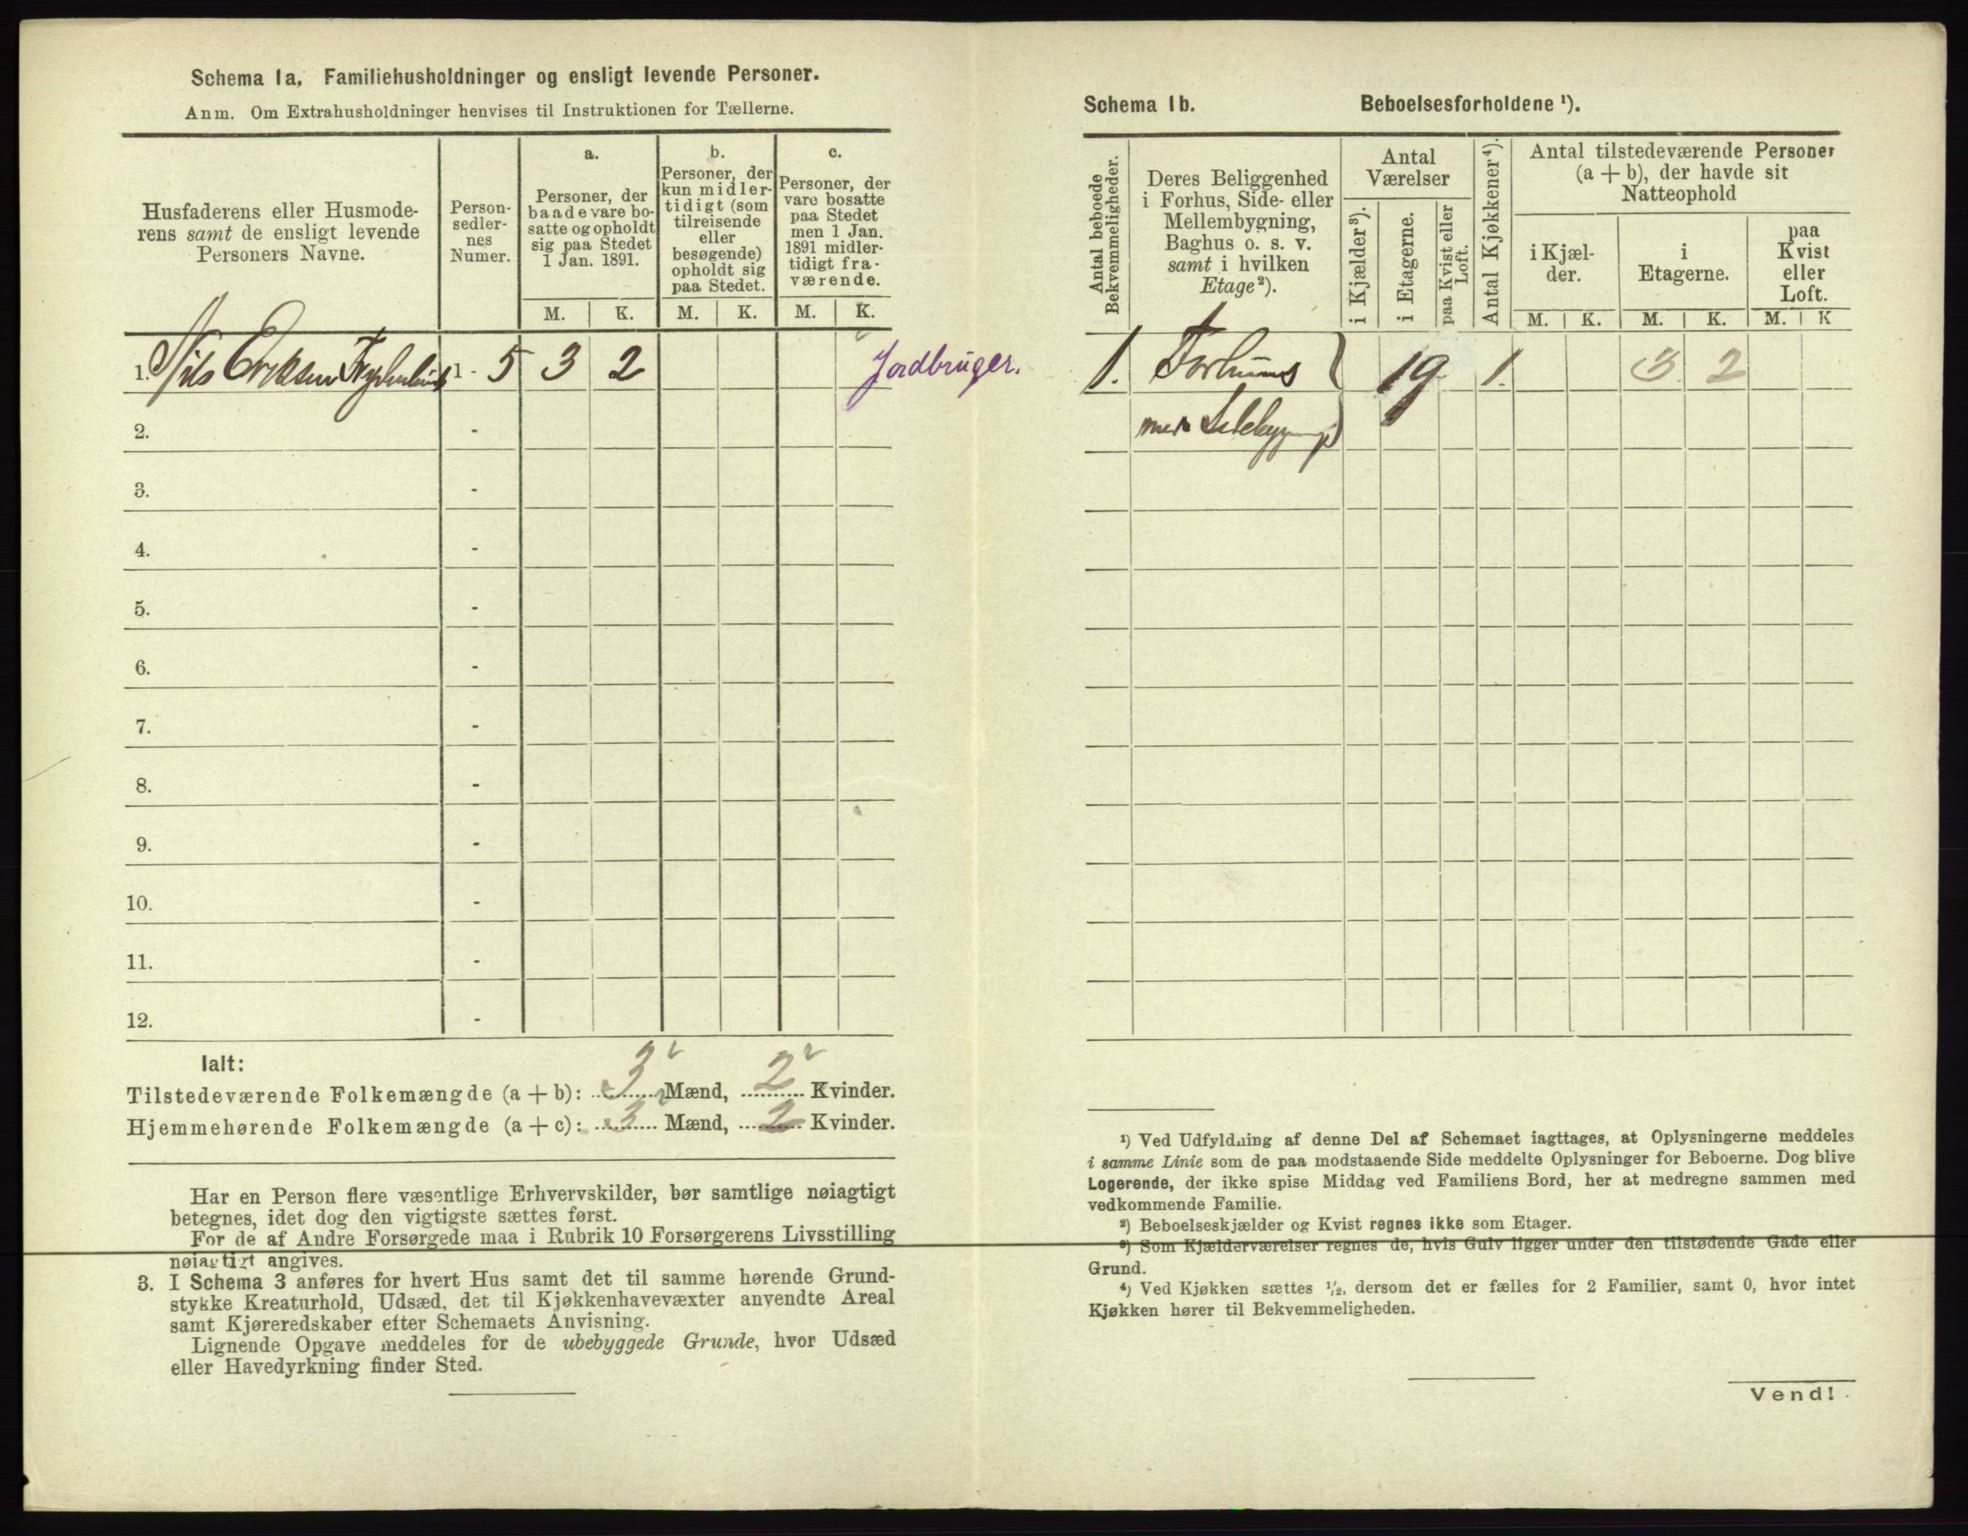 Schema 1a, Familiehusholdninger og ensligt levende Personer.
Anm. Om Extrahusholdninger henvises til Instruktionen for Tællerne.
Husfaderens eller Husmode-
rens samt de ensligt levende
Personers Navne.
Person-
sedler-
nes
Numer.
a.
Personer, der
baade vare bo-
satte og opholdt
sig paa Stedet
1 Jan. 1891.
b.
Personer, der
kun midler-
tidigt (som
tilreisende
eller
besøgende)
opholdt sig
paa Stedet.
c.
Personer, der
vare bosatte
paa Stedet
men 1 Jan.
1891 midler-
tidigt fra-
værende.
M. K. M. K. M. K.
1. Nils Eriksen 1 - 5 3 2 Jordbruger.
2. -
3. -
4. -
5. -
6. -
7. -
8. -
9. -
10. -
11. -
12. -
Ialt:
Tilstedeværende Folkemængde (a + b): 3 Mænd, 2 Kvinder.
Hjemmehørende Folkemængde (a + c): 3 Mænd, 2 Kvinder.
Har en Person flere væsentlige Erhvervskilder, bør samtlige nøiagtigt
betegnes, idet dog den vigtigste sættes først.
For de af Andre Forsørgede maa i Rubrik 10 Forsørgerens Livsstilling
nøiagtigt angives.
3. I Schema 3 anføres for hvert Hus samt det til samme hørende Grund-
stykke Kreaturhold, Udsæd, det til Kjøkkenhavevæxter anvendte Areal
samt Kjøreredskaber efter Schemaets Anvisning.
Lignende Opgave meddeles for de ubebyggede Grunde, hvor Udsæd
eller Havedyrkning finder Sted.
Schema 1b. Beboelsesforholdene ¹).
Antal beboede
Bekvemmeligheder.
Deres Beliggenhed
i Forhus, Side- eller
Mellembygning,
Baghus o. s. v.
samt i hvilken
Etage²).
Antal
Værelser
i Kjælder³).
i Etagerne.
paa Kvist eller
Loft.
Antal Kjøkkener⁴).
Antal tilstedeværende Personer
(a + b), der havde sit
Natteophold
i Kjæl-
der.
i
Etagerne.
paa
Kvist
eller
Loft.
M. K. M. K. M. K
1. Forhuus 19 1. 3 2
med Sidebygning
¹) Ved Udfyldning af denne Del af Schemaet iagttages, at Oplysningerne meddeles
i samme Linie som de paa modstaaende Side meddelte Oplysninger for Beboerne. Dog blive
Logerende, der ikke spise Middag ved Familiens Bord, her at medregne sammen med
vedkommende Familie.
²) Beboelseskjælder og Kvist regnes ikke som Etager.
³) Som Kjælderværelser regnes de, hvis Gulv ligger under den tilstødende Gade eller
Grund.
⁴) Ved Kjøkken sættes ¹/₂, dersom det er fælles for 2 Familier, samt 0, hvor intet
Kjøkken hører til Bekvemmeligheden.
Vend!